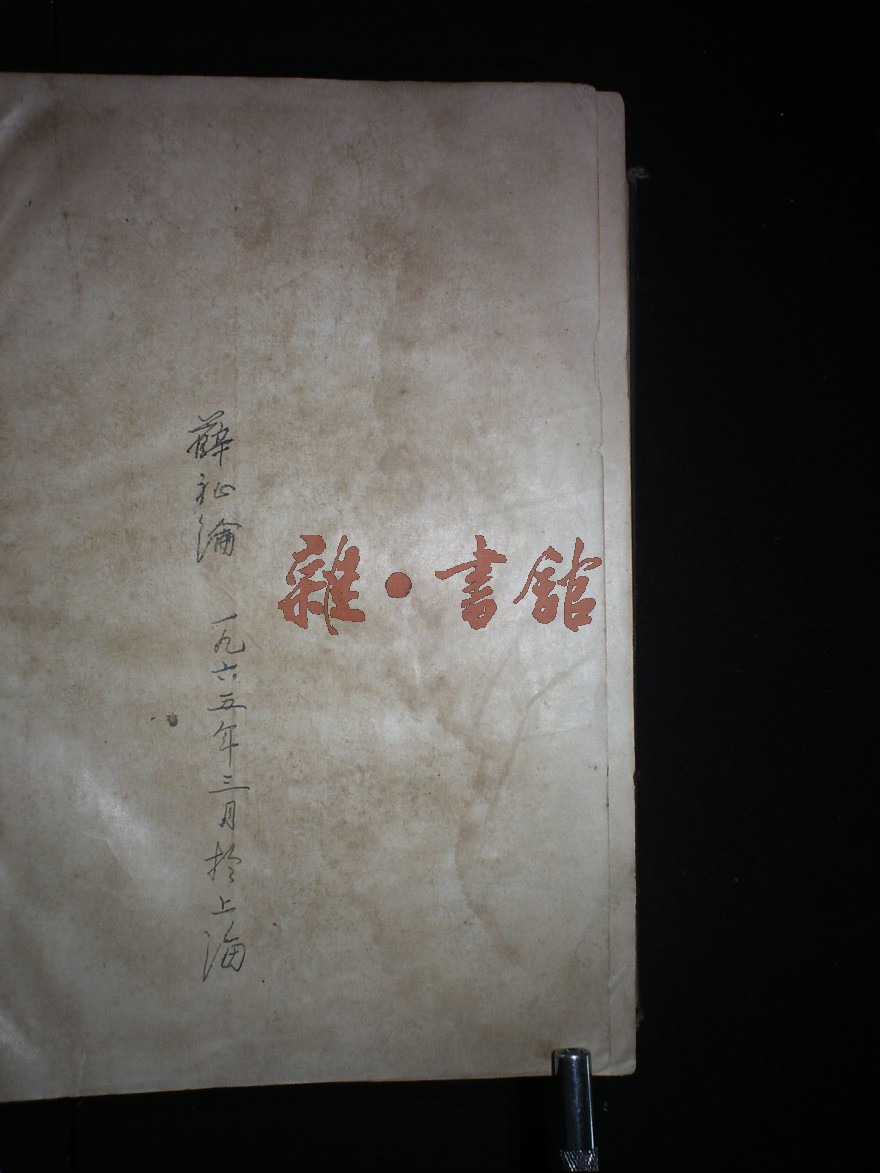 薛祉淪 一九六五年三月於上海
雜·書館